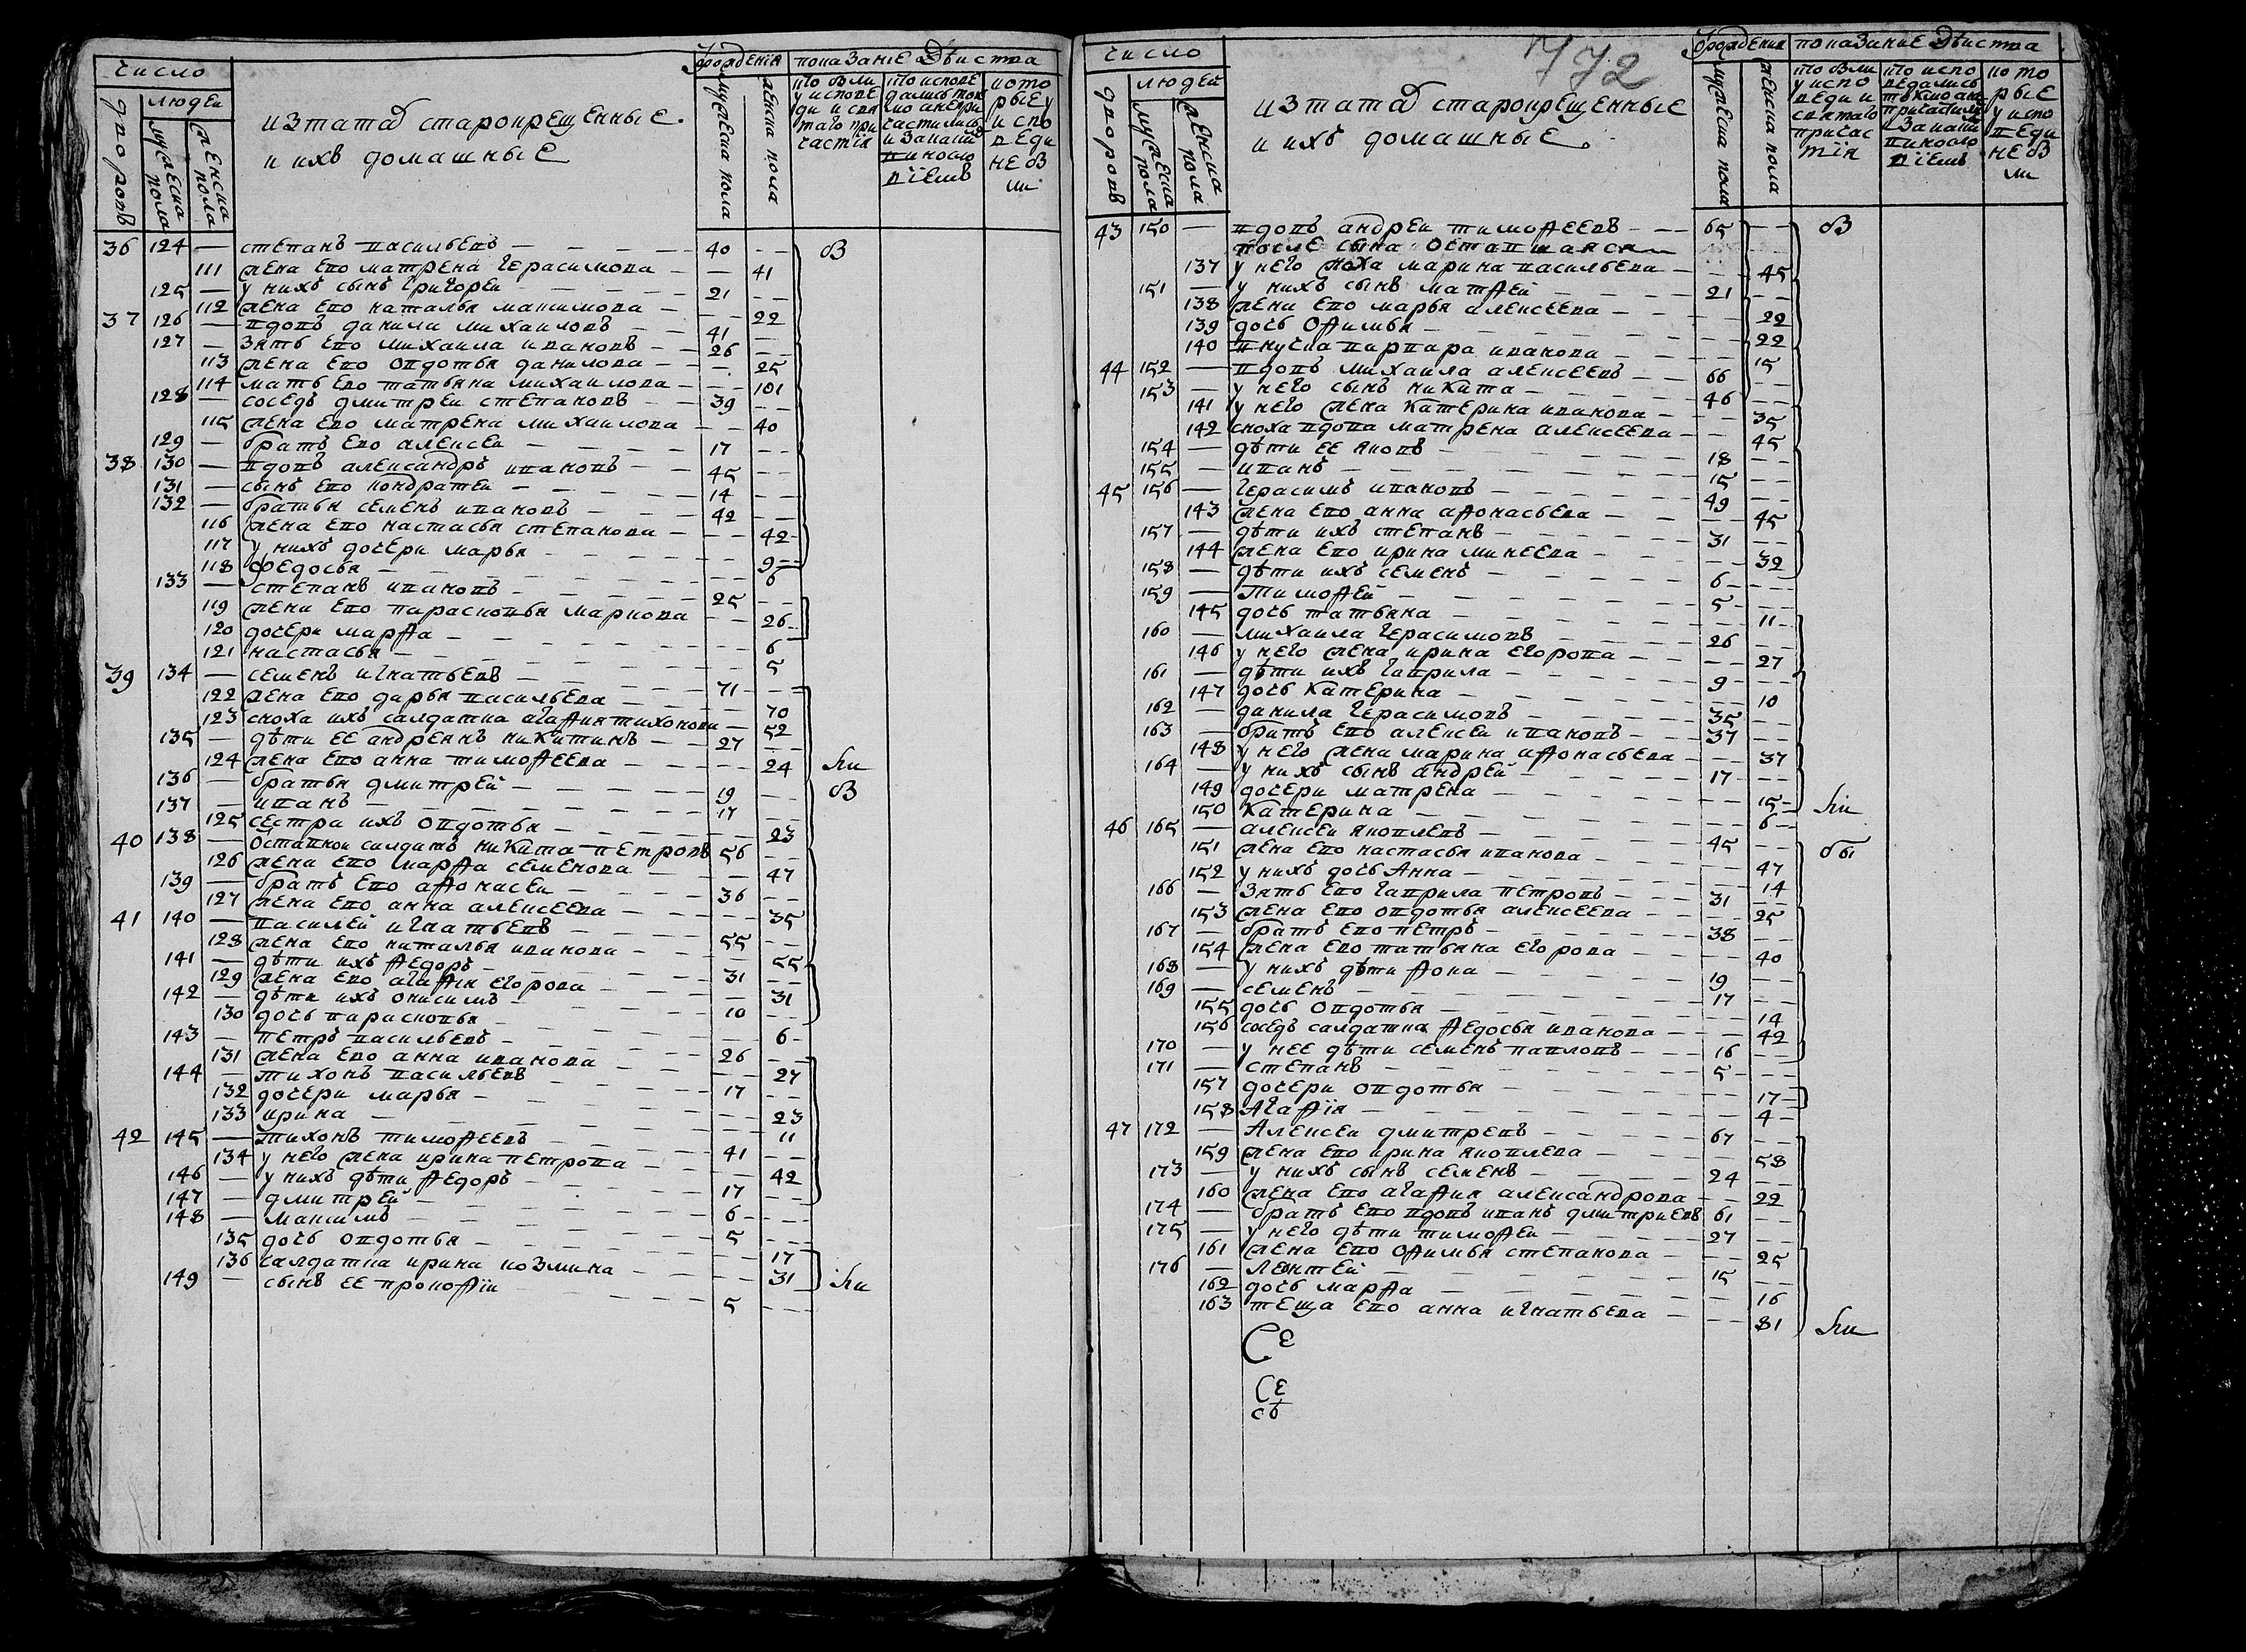 число
людей
дворовъ
мужеска пола
женска пола
изтатаръ старокрещенные
и ихъ домашные
ѿрождения
мужеска пола
женска пола
показание действа
кто были у исповеди и святаго причастія
кто исповедались токмо а не причастились и за какимъ виновословіемъ
которые у исповеди не были
36 124 — степанъ васильевъ — 40 — б
111 жена ево матрена герасимова — 41
125 — у нихъ сынъ григорей — 21 —
112 жена ево наталья максимова — 22
37 126 — вдовъ данила михаиловъ — 41 —
127 — зять ево михаила ивановъ — 26 —
113 жена ево овдотья данилова — 25
114 мать ево татьяна михаилова — 101
128 — соседъ дмитреи степановъ — 39 —
115 жена ево матрена михаилова — 40
129 — братъ ево алексеи — 17 —
38 130 — вдовъ александръ ивановъ — 45 —
131 — сынъ ево кондратеи — 14 —
132 — братья семенъ ивановъ — 42 —
116 жена ево настасья степанова — 42
117 у нихъ дочери марья — 9
118 федосья — 6
133 — степанъ ивановъ — 25 —
119 жена ево парасковья маркова — 26
120 дочери марѳа — 6
121 настасья — 5
39 134 — семенъ игнатьевъ — 71 —
122 жена ево дарья васильева — 70
123 сноха ихъ салдатка агаѳия тихонова — 52
135 — дѣти ее андреянъ никитинъ — 27 —
124 жена ево анна тимоѳеева — 24
136 — братья дмитрей — 19 — б
137 — иванъ — 17 —
125 сестра ихъ овдотья — 23
40 138 — оставнои салдатъ никита петровъ 56 —
126 жена ево марѳа семенова — 47
139 — братъ ево аѳонасеи — 36 —
127 жена ево анна алексеева — 35
41 140 — василей игнатьевъ — 55 —
128 жена ево наталья иванова — 55
141 — дѣти ихъ ѳедоръ — 31 —
129 жена ево агаѳія егорова — 31
142 — дѣти ихъ онисимъ — 10 —
130 дочь парасковья — 6
143 — петръ васильевъ — 26 —
131 жена ево анна иванова — 27
144 — тихонъ васильевъ — 17 —
132 дочери марья — 23
133 ирина — 11
42 145 — тихонъ тимоѳеевъ — 41 —
134 у него жена ирина петрова — 42
146 — у нихъ дѣти ѳедоръ — 17 —
147 — дмитрей — 6 —
148 — максимъ — 5 —
135 дочь овдотья — 17
136 салдатка ирина козмина — 31
149 — сынъ ее прокоѳіи — 5 —
772
число
людей
дворовъ
мужеска пола
женска пола
изтатаръ старокрещенные
и ихъ домашные.
ѿрождения
мужеска пола
женска пола
показание действа
кто были у исповеди и святаго причастія
кто исповедались токмо а не причастились и за какимъ виновословіемъ
которые у исповеди не были
43 150 — вдовъ андреи тимоѳеевъ — 65 — б
после сына
137 у него сноха марина васильева — 45
151 — у нихъ сынъ матѳей — 21 —
138 жена ево марья алексеева — 22
139 дочь оѳимья — 22
140 внучка варвара иванова — 15
44 152 — вдовъ михаила алексеевъ — 66 —
153 — у него сынъ никита — 46 —
141 у него жена катерина иванова — 35
142 сноха вдова матрена алексеева — 45
154 — дѣти ее яковъ — 18 —
155 — иванъ — 15 —
45 156 — герасимъ ивановъ — 49 —
143 жена ево анна аѳонасьева — 45
157 — дѣти ихъ степанъ — 31 —
144 жена ево ирина минеева — 32
158 — дѣти ихъ семенъ — 6 —
159 — тимоѳей — 5 —
145 дочь татьяна — 11
160 — михаила герасимовъ — 26 —
146 у него жена ирина егорова — 27
161 — дѣти ихъ гаврила — 9 —
147 дочь катерина — 10
162 — данила герасимовъ — 35 —
163 — братъ ево алексеи ивановъ — 37 —
148 у него жена марина аѳонасьева — 37
164 — у нихъ сынъ андрей — 17 —
149 дочери матрена — 15
150 катерина — 6
46 165 — алексеи яковлевъ — 45 — бы
151 жена ево настасья иванова — 47
152 у нихъ дочь анна — 14
166 — зять ево гаврила петровъ — 31 —
153 жена ево овдотья алексеева — 25
167 — братъ ево петръ — 38 —
154 жена ево татьяна егорова — 40
168 — у нихъ дѣти ѳока — 19 —
169 — семенъ — 17 —
155 дочь овдотья — 14
156 соседъ салдатка ѳедосья иванова — 42
170 — у нее дѣти семенъ павловъ — 16 —
171 — степанъ — 5 —
157 дочери овдотья — 17
158 агаѳія — 4
47 172 — алексеи дмитревъ — 67 —
159 жена ево ирина яковлева — 58
173 — у нихъ сынъ семенъ — 24 —
160 жена ево агаѳия александрова — 22
174 — братъ ево вдовъ иванъ дмитриевъ 61 —
175 — у него дѣти тимоѳеи — 27 —
161 жена ево оѳимья степанова — 25
176 — леонтей — 15 —
162 дочь марѳа — 16
163 теща ево анна игнатьева — 81